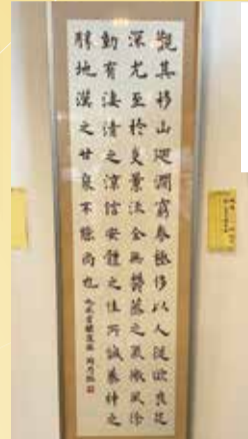 觀其移山迴澗窮泰極侈以人從欲良足
深尤至於炎景流金無鬱蒸之氣微風徐
動有淒清之涼信安體之佳所誠養神之
勝地漢之甘泉不能尚也